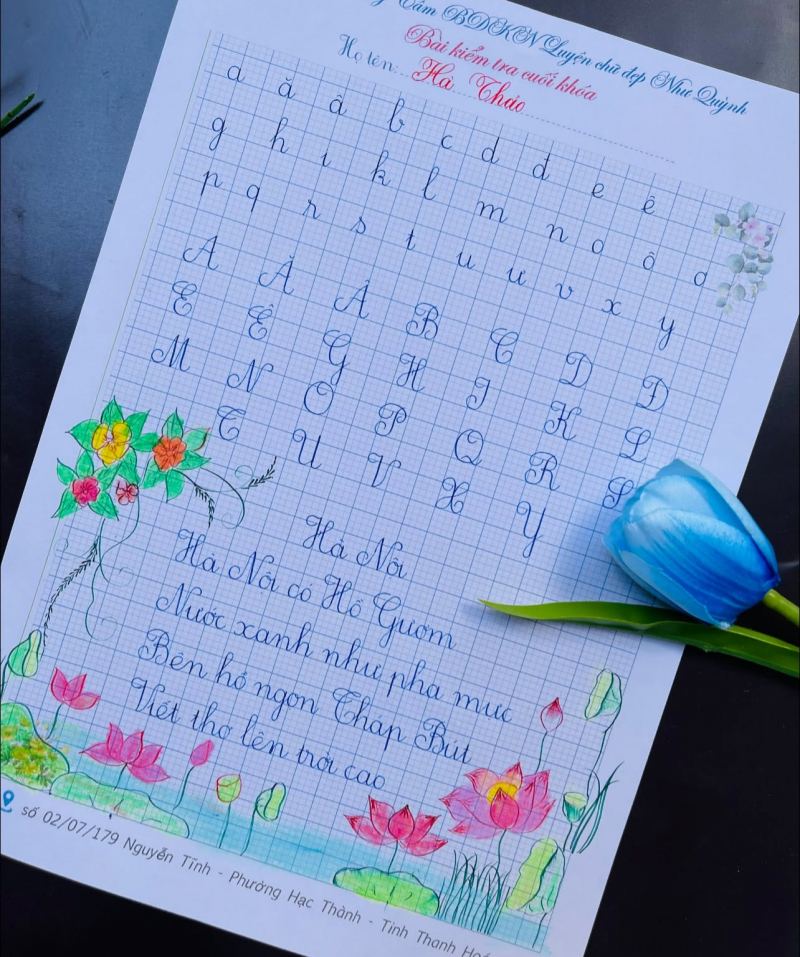 Tâm BDKN Luyện chữ đẹp Như Quỳnh
Bài kiểm tra cuối khóa
Họ tên: Hà Thảo
a ă â b c d đ e ê
g h i k l m n o ô ơ
p q r s t u ư v x y
A Ă Â B C D Đ
E Ê G H I K L
M N O P Q R S
T U V X Y
Hà Nội
Hà Nội có Hồ Gươm
Nước xanh như pha mực
Bên hồ ngọn Tháp Bút
Viết thơ lên trời cao
số 02/07/179 Nguyễn Tĩnh - Phường Hạc Thành - Tỉnh Thanh